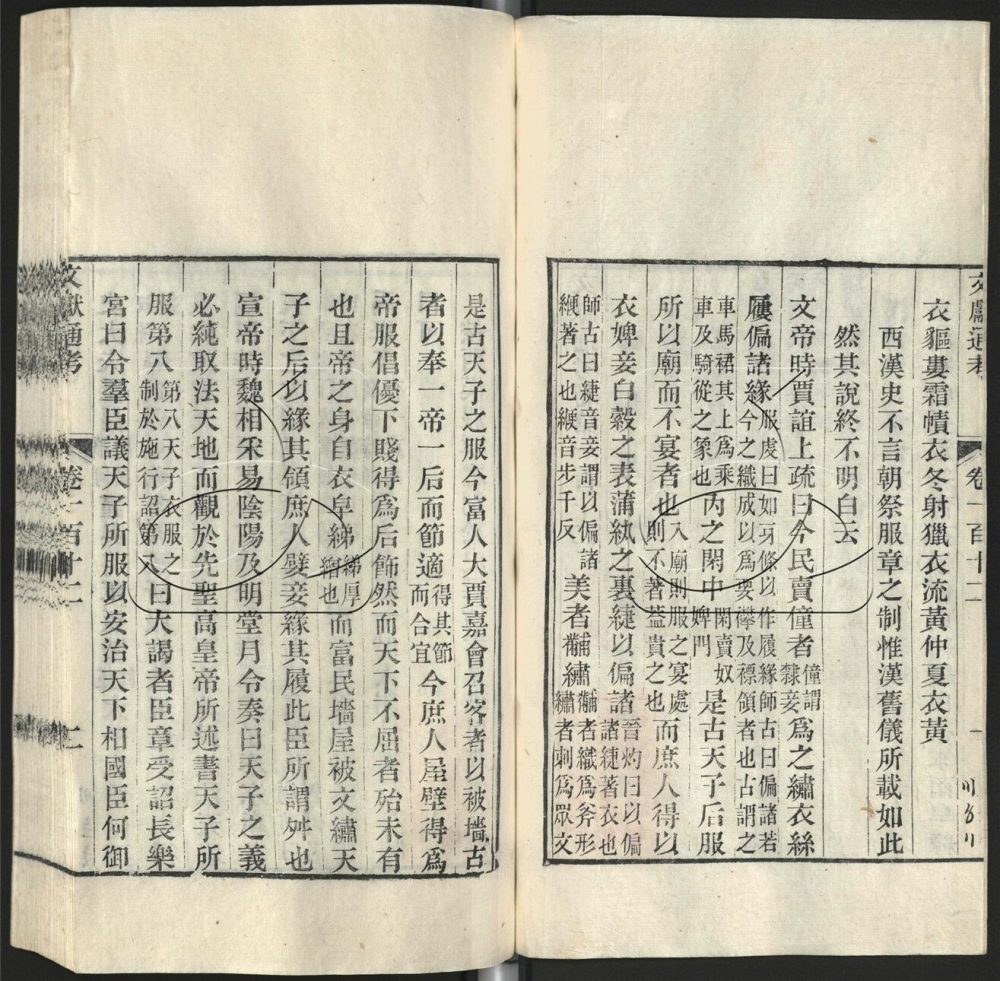 文獻通考 卷一百十二
衣貙婁霜幘衣冬射獵衣流黃仲夏衣黃
西漢史不言朝祭服章之制惟漢舊儀所載如此
然其說終不明白云
文帝時賈誼上疏曰今民賣僮者僮謂隸妾爲之繡衣絲
屨偏諸緣服虔曰如牙條以作履緣師古曰偏諸若今之織成以爲要襻及褾領者也古謂之
車馬裙其上爲乘車及騎從之象也內之閑中閑賣奴婢門是古天子后服
所以廟而不宴者也入廟則服之宴處則不著蓋貴之也而庶人得以
衣婢妾白縠之表薄紈之裏緁以偏諸晉灼曰以偏諸緁著衣也
師古曰緁音妾謂以偏諸緶著之也緶音步千反美者黼繡黼者織爲斧形繡者刺爲眾文
是古天子之服今富人大賈嘉會召客者以被墻古
者以奉一帝一后而節適得其節而合宜今庶人屋壁得爲
帝服倡優下賤得爲后飾然而天下不屈者殆未有
也且帝之身自衣皁綈綈厚繒也而富民墻屋被文繡天
子之后以緣其領庶人孼妾緣其履此臣所謂舛也
宣帝時魏相采易陰陽及明堂月令奏曰天子之義
必純取法天地而觀於先聖高皇帝所述書天子所
服第八第八天子衣服之制於施行詔第八曰大謁者臣章受詔長樂
宮曰令羣臣議天子所服以安治天下相國臣何御
文獻通考 卷一百十二 二